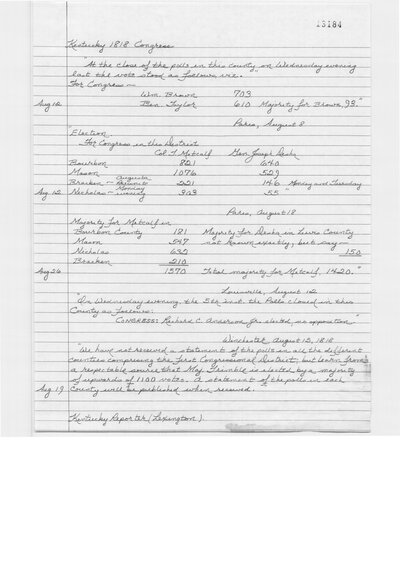 13184
Kentucky 1818 Congress
"At the close of the polls in this county on Wednesday evening
last the vote stood as follows viz:
For Congress —
Wm. Brown 703
Aug 12 Ben. Taylor 610 Majority for Brown, 93."
Paris, August 8
Election
For Congress in this District
Col. T. Metcalf Gen. Joseph Desha
Bourbon 821 640
Mason 1076 529
Bracken — Augusta Precincts 221 146 Monday and Tuesday
Aug 12 Nicholas — Monday evening 55"
Paris, August 18
Majority for Metcalf in
Bourbon County 181 Majority for Desha in Lewis County
Mason 547 not known exactly, but say —
Nicholas 632 150
Bracken 210
Aug 26 1570 Total majority for Metcalf, 1420."
Louisville, August 12
"On Wednesday evening, the 5th inst. the Polls closed in this
County as follows:
CONGRESS: Richard C. Anderson Jr. elected, no opposition"
Winchester, August 12, 1818
"We have not received a statement of the polls in all the different
counties composing the First Congressional District, but learn from
a respectable source that Maj. Trimble is elected by a majority
of upwards of 1100 votes. A statement of the polls in each
Aug 19 County will be published when received.
Kentucky Reporter (Lexington).